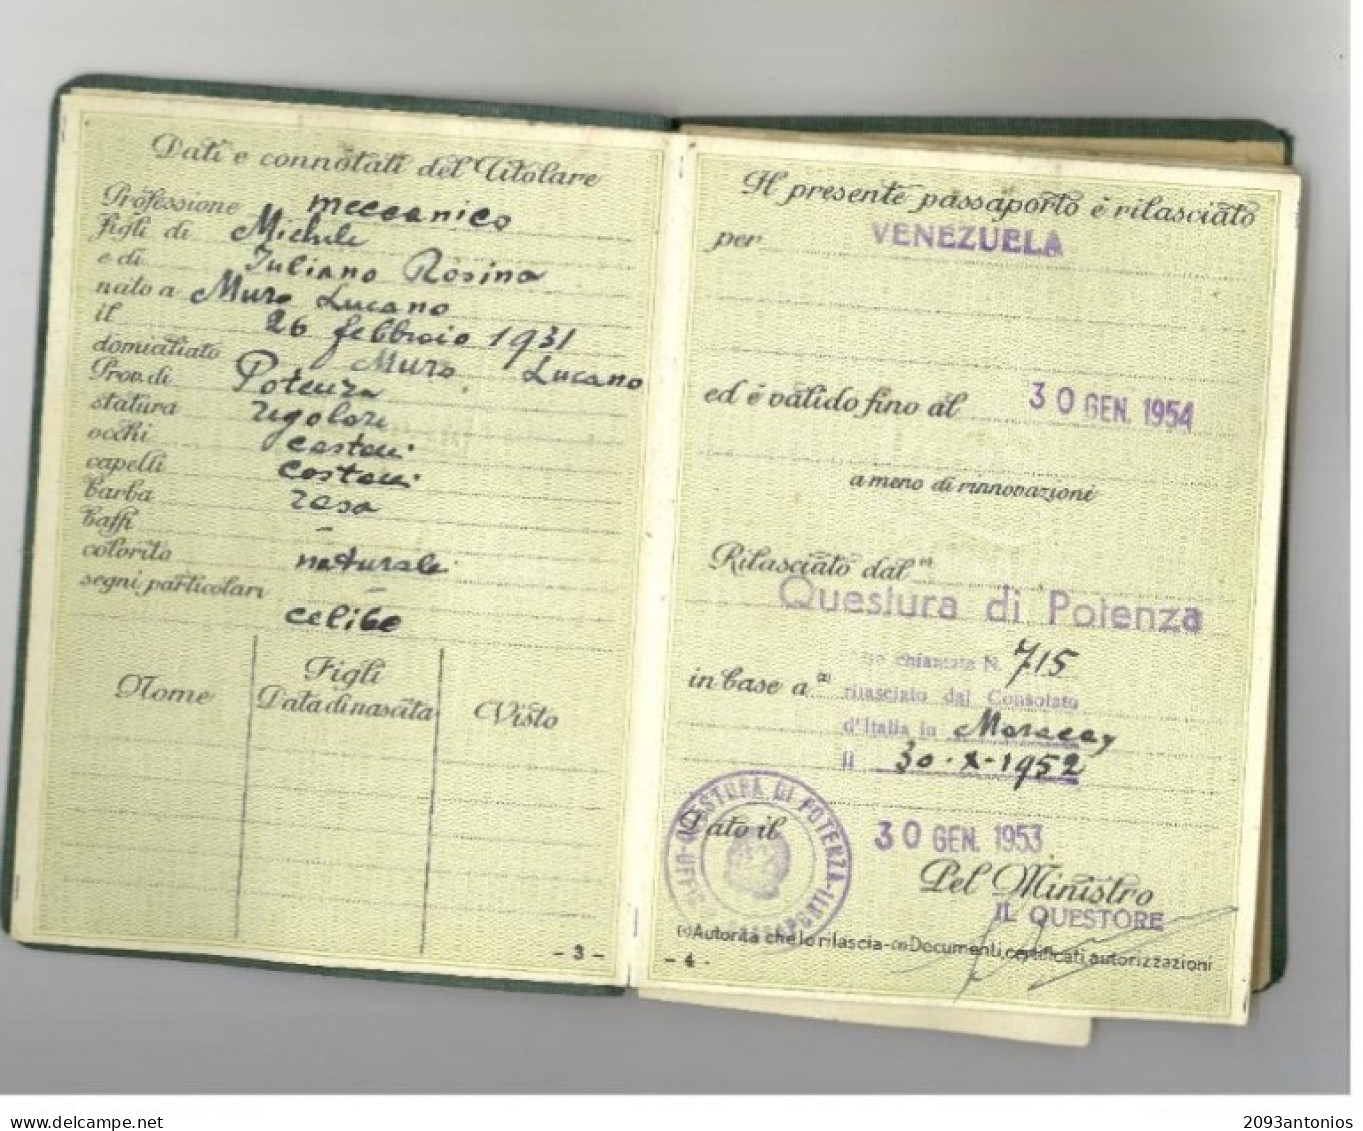 Dati e connotati del Titolare
Professione meccanico
figli di Michele
e di Iuliano Rosina
nato a Muro Lucano
il 26 febbraio 1931
domiciliato Muro Lucano
Prov. di Potenza
statura regolare
occhi castani
capelli castani
barba rasa
baffi –
colorito naturale
segni particolari –
celibe
Figli
Nome Data di nascita Visto
- 3 -
Il presente passaporto è rilasciato
per VENEZUELA
ed è valido fino al 30 GEN. 1954
a meno di rinnovazioni
Rilasciato dal (1)
Questura di Potenza
chiamata N. 715
in base a (2) rilasciato dal Consolato
d'Italia in Maracay
il 30-X-1952
QUESTURA DI POTENZA
Dato il 30 GEN. 1953
Pel Ministro
IL QUESTORE
(1) Autorità che lo rilascia - (2) Documenti, certificati, autorizzazioni
- 4 -
2093antonios